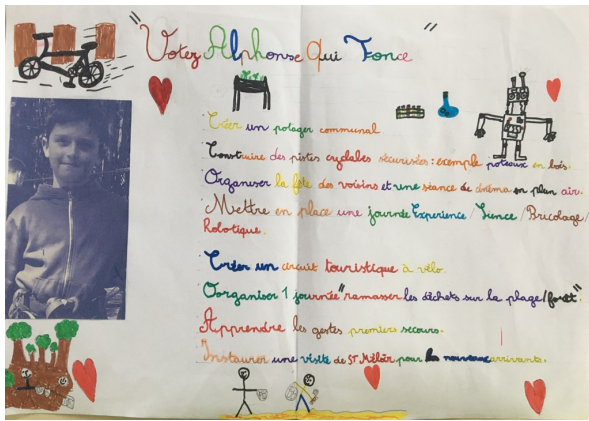 "Votez Alphonse Qui Fonce"
Créer un potager communal
Construire des pistes cyclables sécurisées : exemple poteaux en bois.
Organiser la fête des voisins et une séance de cinéma en plan air.
Mettre en place une journée Experience / Sience / Bricolage /
Robotique.
Créer un circuit touristique à vélo.
Oorganiser 1 journée "ramasser les déchets sur la plage / forêt".
Apprendre les gestes premiers secours.
Instaurer une visite de ST Méloir pour les nouveaux arrivants.